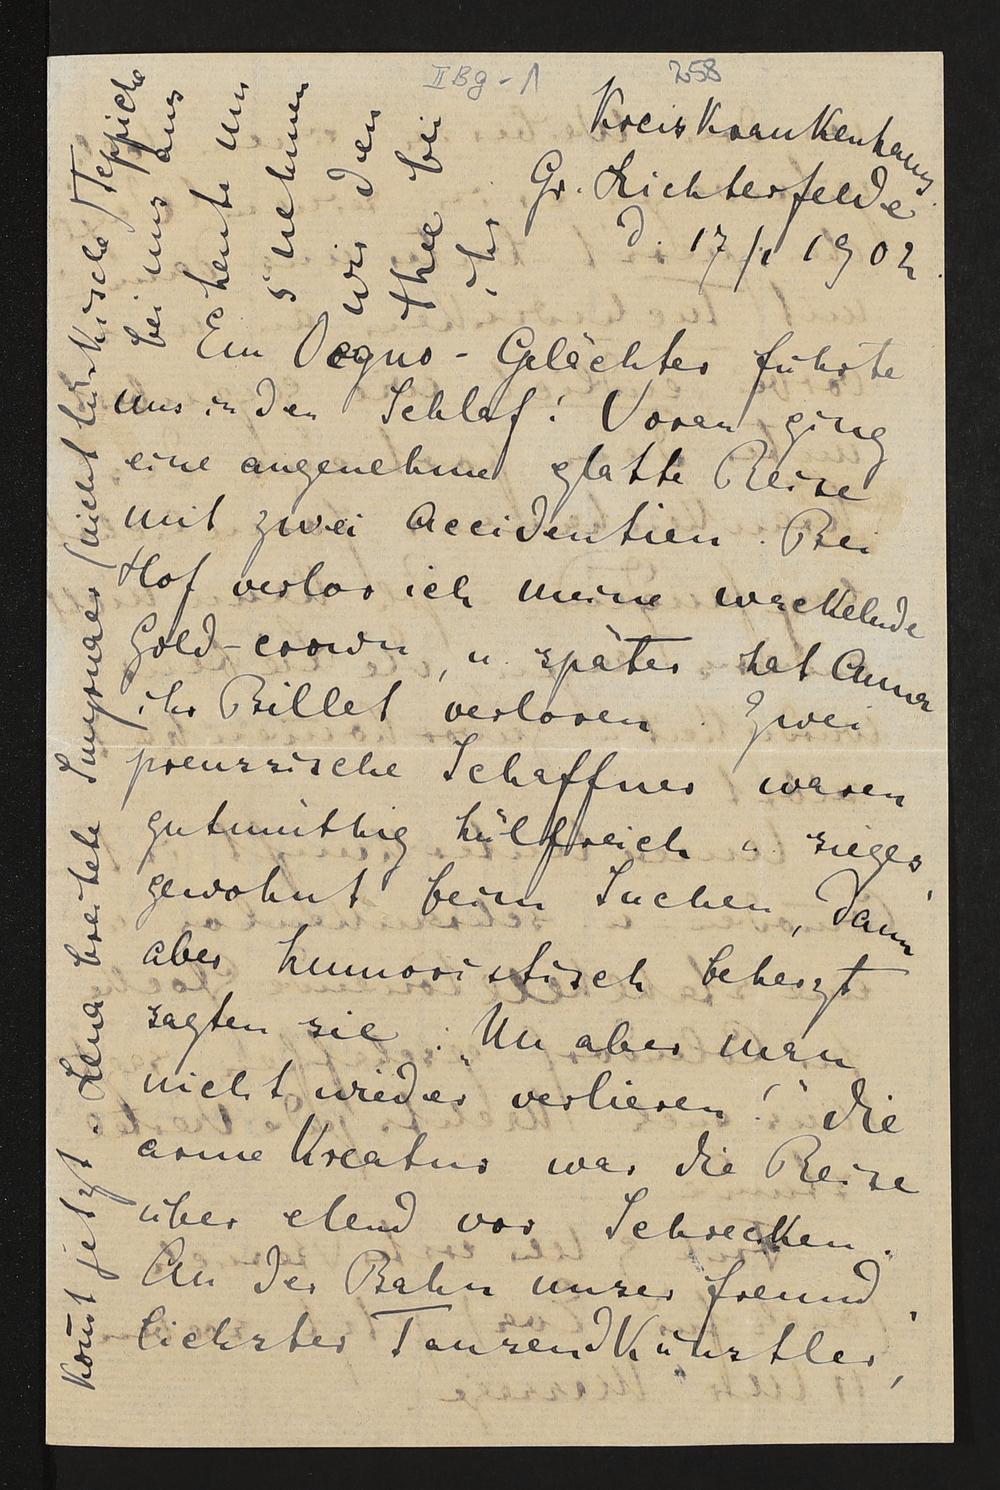 II Bg - 1
258
Kreiskrankenhaus
Gr. Lichterfelde
d. 17/1 1902.
Ein Ocgno - Gelächter führte
uns in den Schlaf! Voran ging
eine angenehme glatte Reise
mit zwei Accidentien. Bei
Hof verlor ich meine wackelnde
Gold-crown, u. später hat Anna
ihr Billet verloren. Zwei
preussische Schaffner waren
gutmüthig hülfreich u. sieges
gewohnt beim Suchen, dann
aber humoristisch beherzt
sagten sie: "Nu aber man
nicht wieder verlieren!" die
arme Kreatur war die Reise
über elend vor Schrecken.
An der Bahn unser freund
lichster Tausendkünstler,
kom̄t jetzt. Lena breitete Smyrnaer (nicht türkische) Teppiche
bei uns aus
heute um
5 nehmen
wir den
thee bei
ihr